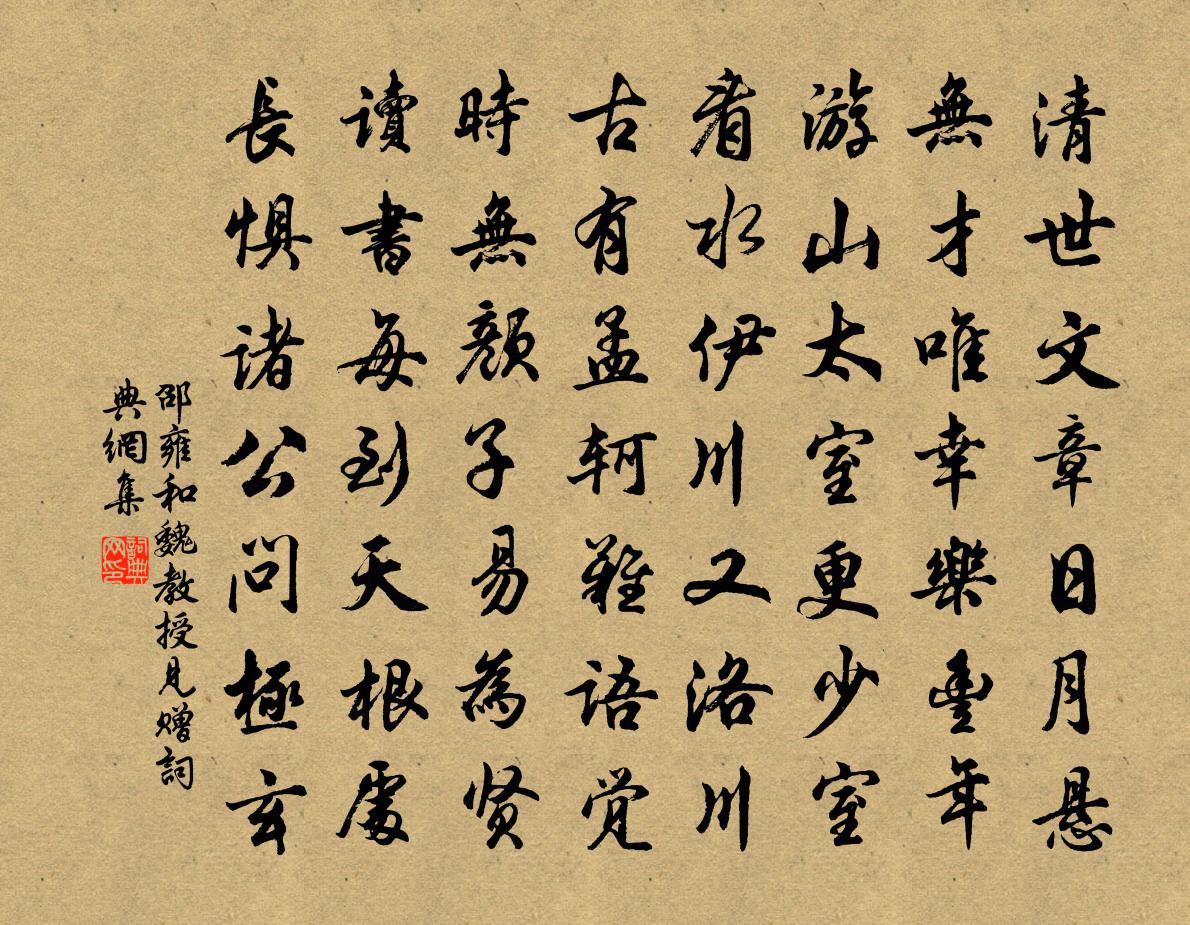 清世文章日月悬
無才唯幸樂豊年
游山太室更少室
看水伊川又洛川
古有孟軻難語觉
時無顔子易為贤
讀書每到天根處
長惧诸公問極玄
邵雍和魏教授見赠詞
典網集
詞典网印